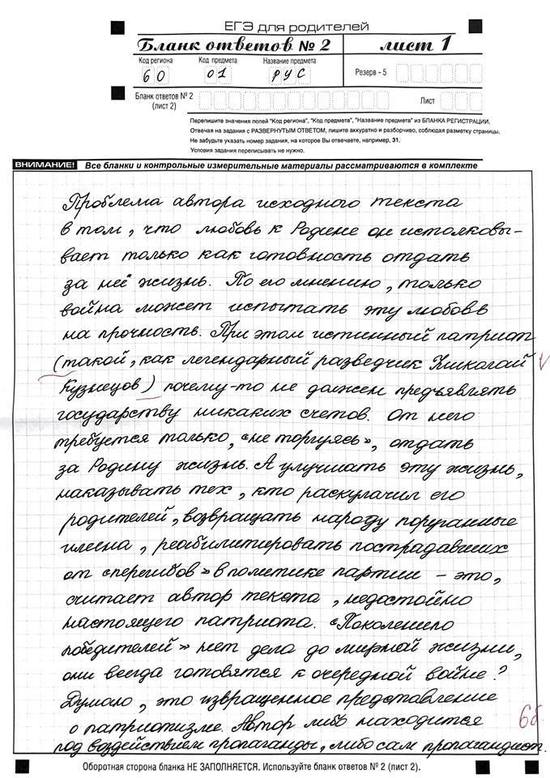 ЕГЭ для родителей
Бланк ответов № 2 лист 1
Код региона Код предмета Название предмета
60 01 РУС Резерв - 5
Бланк ответов № 2 (лист 2) Лист
Перепишите значения полей "Код региона", "Код предмета", "Название предмета" из БЛАНКА РЕГИСТРАЦИИ.
Отвечая на задания с РАЗВЕРНУТЫМ ОТВЕТОМ, пишите аккуратно и разборчиво, соблюдая разметку страницы.
Не забудьте указать номер задания, на которое Вы отвечаете, например, 31.
Условия задания переписывать не нужно.
ВНИМАНИЕ! Все бланки и контрольные измерительные материалы рассматриваются в комплекте
Проблема автора исходного текста
в том, что любовь к Родине он истолковы-
вает только как готовность отдать
за неё жизнь. По его мнению, только
война может испытать эту любовь
на прочность. При этом истинный патриот
(такой, как легендарный разведчик Николай
Кузнецов) почему-то не должен предъявлять
государству никаких счетов. От него
требуется только, «не торгуясь», отдать
за Родину жизнь. А улучшать эту жизнь,
наказывать тех, кто раскулачил его
родителей, возвращать народу поруганные
имена, реабилитировать пострадавших
от «перегибов» в политике партии – это,
считает автор текста, недостойно
настоящего патриота. «Поколению
победителей» нет дела до мирной жизни,
они всегда готовятся к очередной войне?
Думаю, это извращенное представление
о патриотизме. Автор либо находится
под воздействием пропаганды, либо сам пропагандист.
6б
Оборотная сторона бланка НЕ ЗАПОЛНЯЕТСЯ. Используйте бланк ответов № 2 (лист 2).